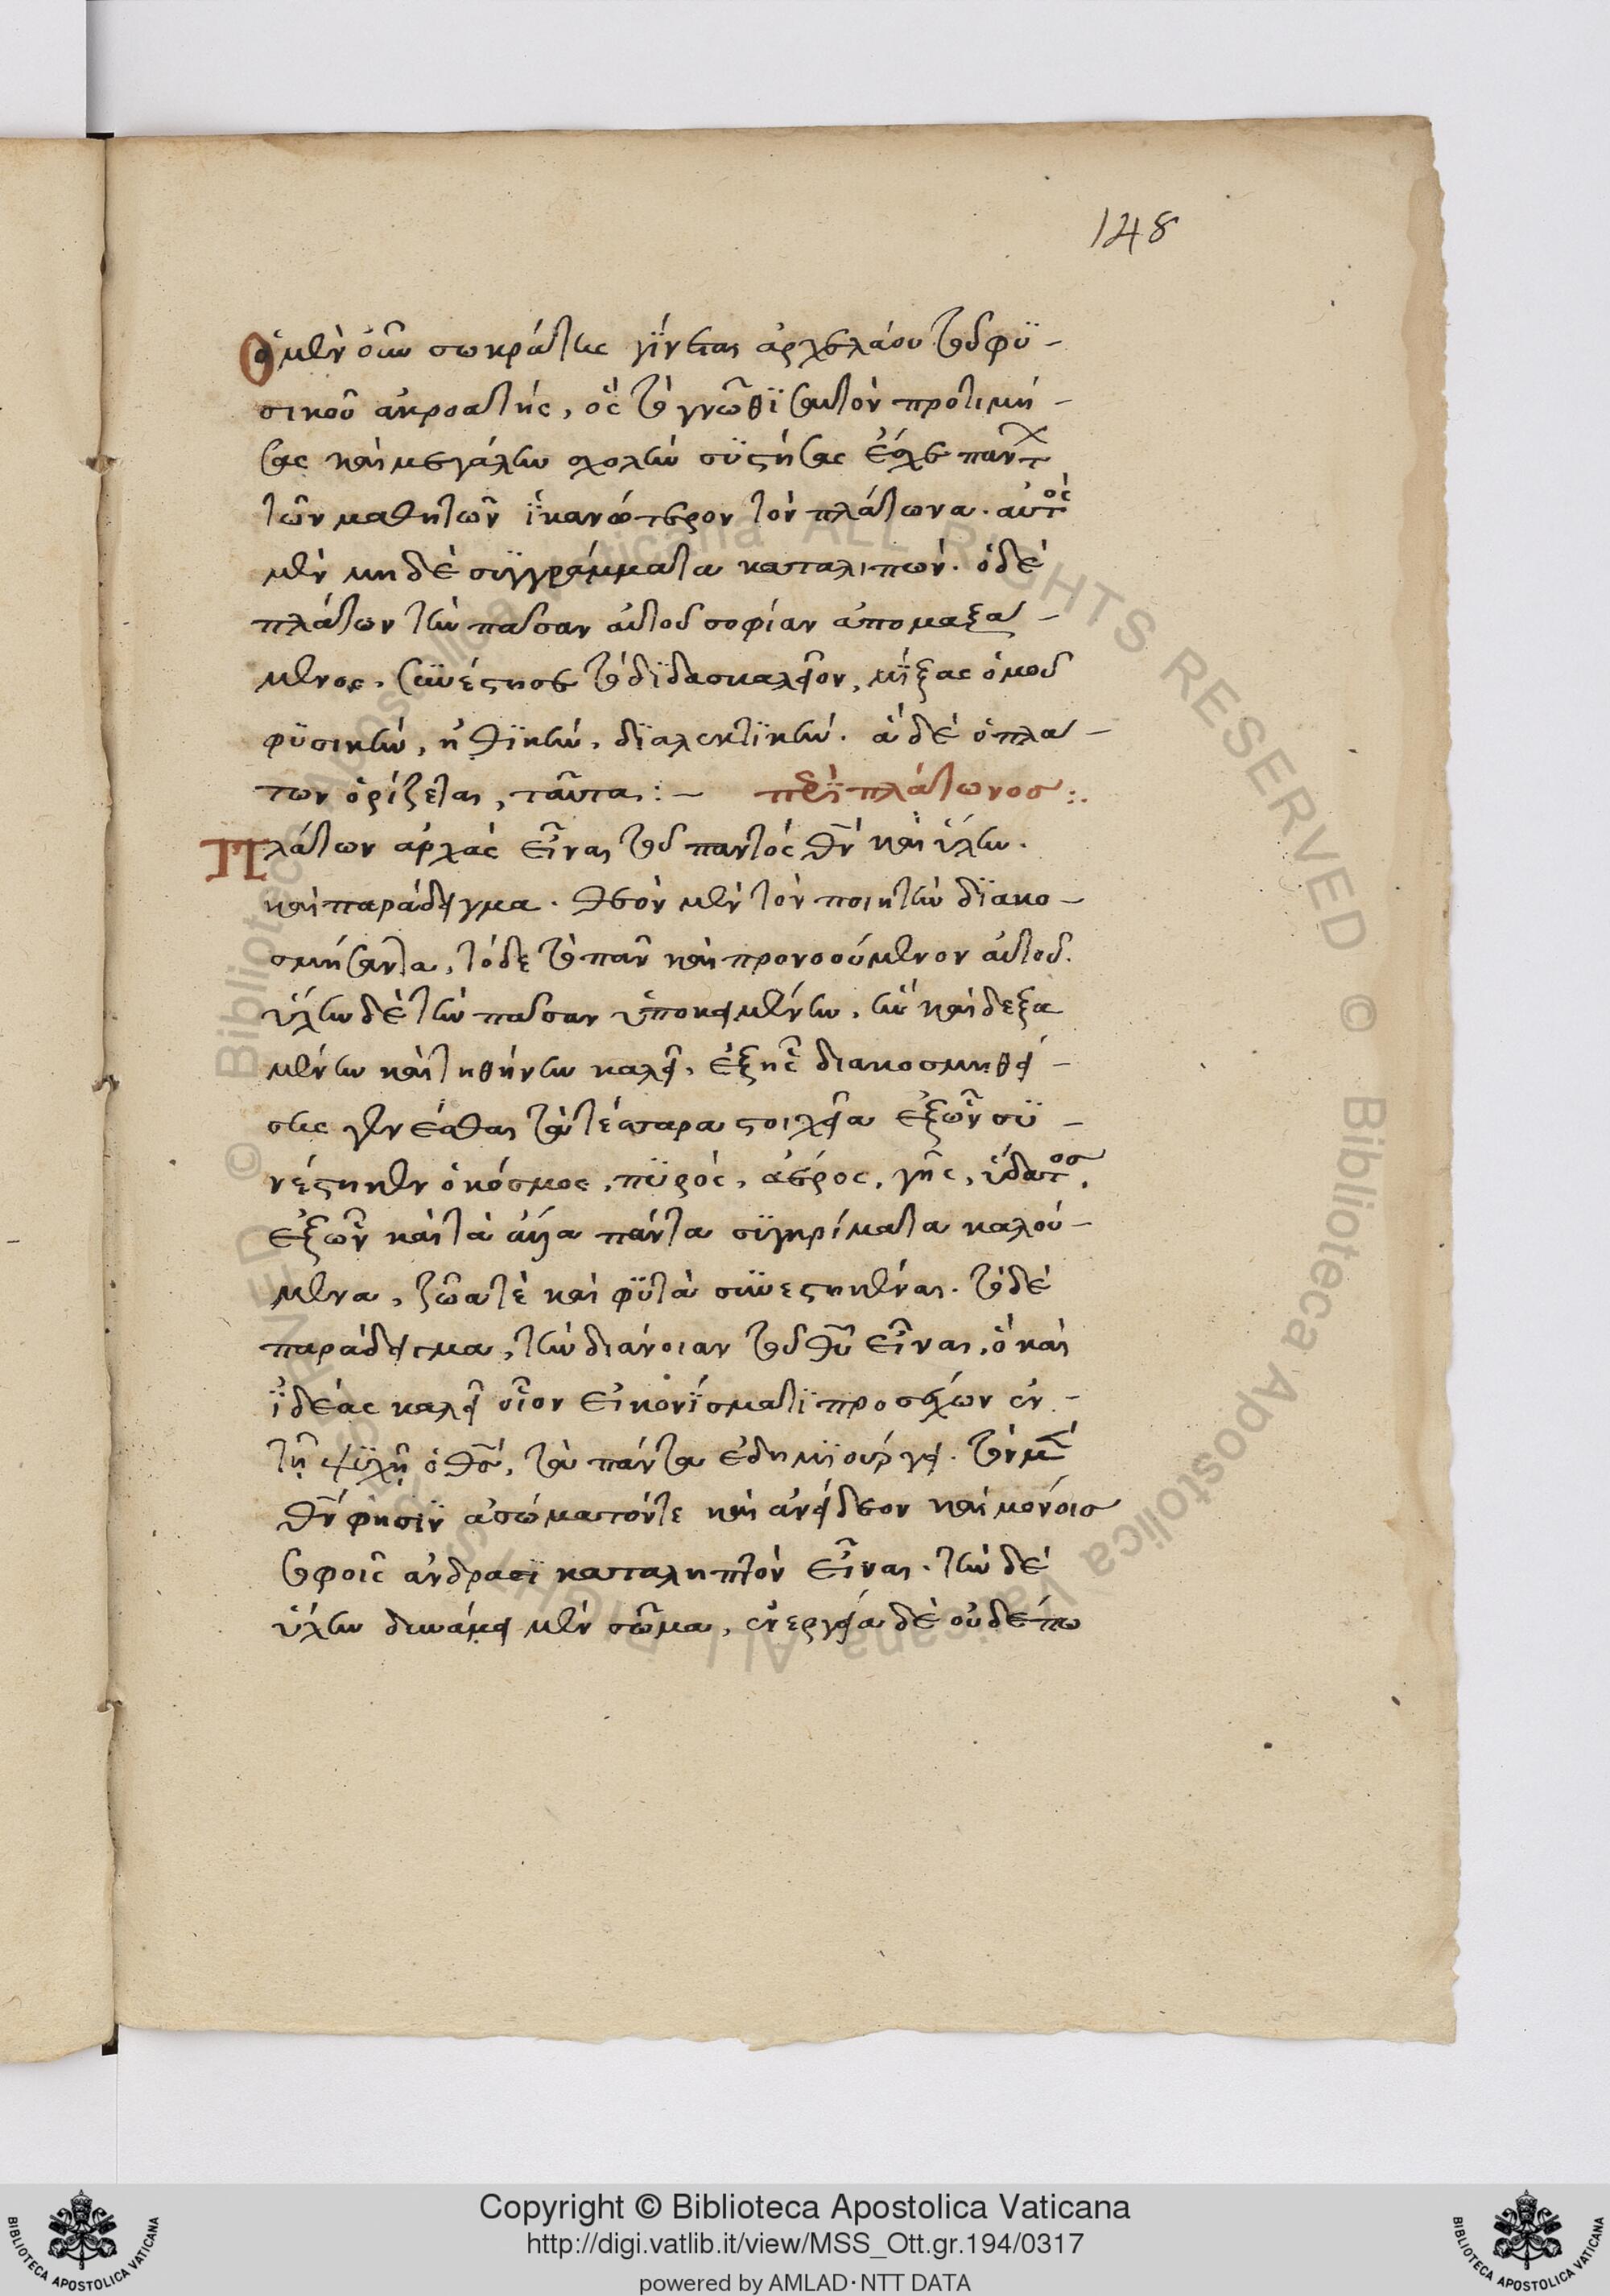 148
ὁ μὲν οὖν σωκράτης γίνεται ἀρχελάου τοῦ φϋ-
σικοῦ ἀκροατής, ὃς τὸ γνῶθϊ σαυτὸν προτιμή-
σας καὶ μεγάλην σχολὴν συστήσας ἔσχε πάντ
τῶν μαθητῶν ἱκανώτερον τὸν πλάτωνα. αὐτὸς
μὲν μηδὲ συγγράμματα καταλιπών. ὁ δὲ
πλάτων τὴν πᾶσαν αὐτοῦ σοφίαν ἀπομαξά-
μενος, συνέστησε τὸ διδασκαλεῖον, μίξας ὁμοῦ
φϋσικὴν, ἠθϊκὴν, δϊαλεκτϊκὴν. ἃ δὲ ὁ πλά-
των ὁρίζεται, ταῦτα :- περὶ πλάτωνοσ :.
Πλάτων ἀρχὰς εἶναι τοῦ παντὸς θν καὶ ὕλην.
καὶ παράδειγμα. θεὸν μὲν τὸν ποιητὴν δϊακο-
σμήσαντα, τόδε τὸ πᾶν καὶ προνοούμενον αὐτοῦ.
ὕλην δὲ τὴν πᾶσαν ὑποκειμένην, ἣν καὶ δεξα
μένην καὶ τηθήνην καλεῖ, ἐξ ἧς διακοσμηθεί-
σης γενέσθαι τὰ τέσσαρα στοιχεῖα ἐξ ὧν συ-
νέστηκεν ὁ κόσμος, πϋρὸς, ἀέρος, γῆς, ὕδατοσ.
ἐξ ὧν καὶ τὰ ἄλλα πάντα συγκρίματα καλού-
μενα, ζῶα τὲ καὶ φϋτὰ συνεστηκέναι. τὸ δὲ
παράδειγμα, τὴν διάνοιαν τοῦ θυ εἶναι, ὃ καὶ
ϊδέας καλεῖ οἷον εἰκονίσματϊ προσέχων ἐν-
τῇ ψϋχῇ ὁ θς, τὰ πάντα ἐδημϊούργει. τὸν μὲν
θν φησὶν ἀσώματόν τε καὶ ἀνείδεον καὶ μόνοισ
σοφοῖς ἀνδρασϊ καταληπτὸν εἶναι. τὴν δὲ
ὕλην δυνάμει μὲν σῶμα, ἐνεργεία δὲ οὐδέπω
Copyright © Biblioteca Apostolica Vaticana
http://digi.vatlib.it/view/MSS_Ott.gr.194/0317
powered by AMLAD·NTT DATA
BIBLIOTECA APOSTOLICA VATICANA
BIBLIOTECA APOSTOLICA VATICANA
© Biblioteca Apostolica Vaticana ALL RIGHTS RESERVED © Biblioteca Apostolica Vaticana ALL RIGHTS RESERVED